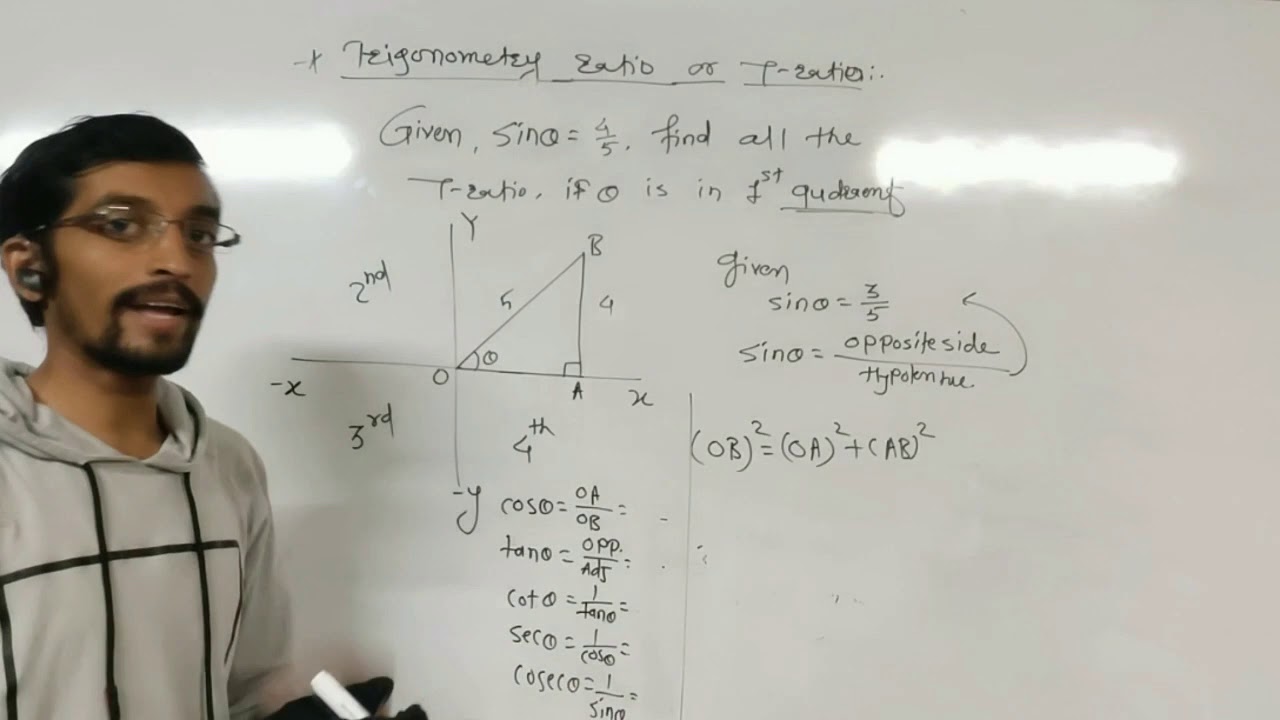 Trigonometry ratio or T-ratio:.
Given, sinθ = 4/5. find all the
T-ratio. if θ is in 1st quderent
Y
B
2nd
5
4
θ
O
A
-x
x
3rd
4th
-y
given
sinθ = 3/5
sinθ = opposite side / Hypotenuse
(OB)² = (OA)² + (AB)²
cosθ = OA/OB =
tanθ = OPP./Adj =
cotθ = 1/tanθ =
secθ = 1/cosθ =
cosecθ = 1/sinθ =